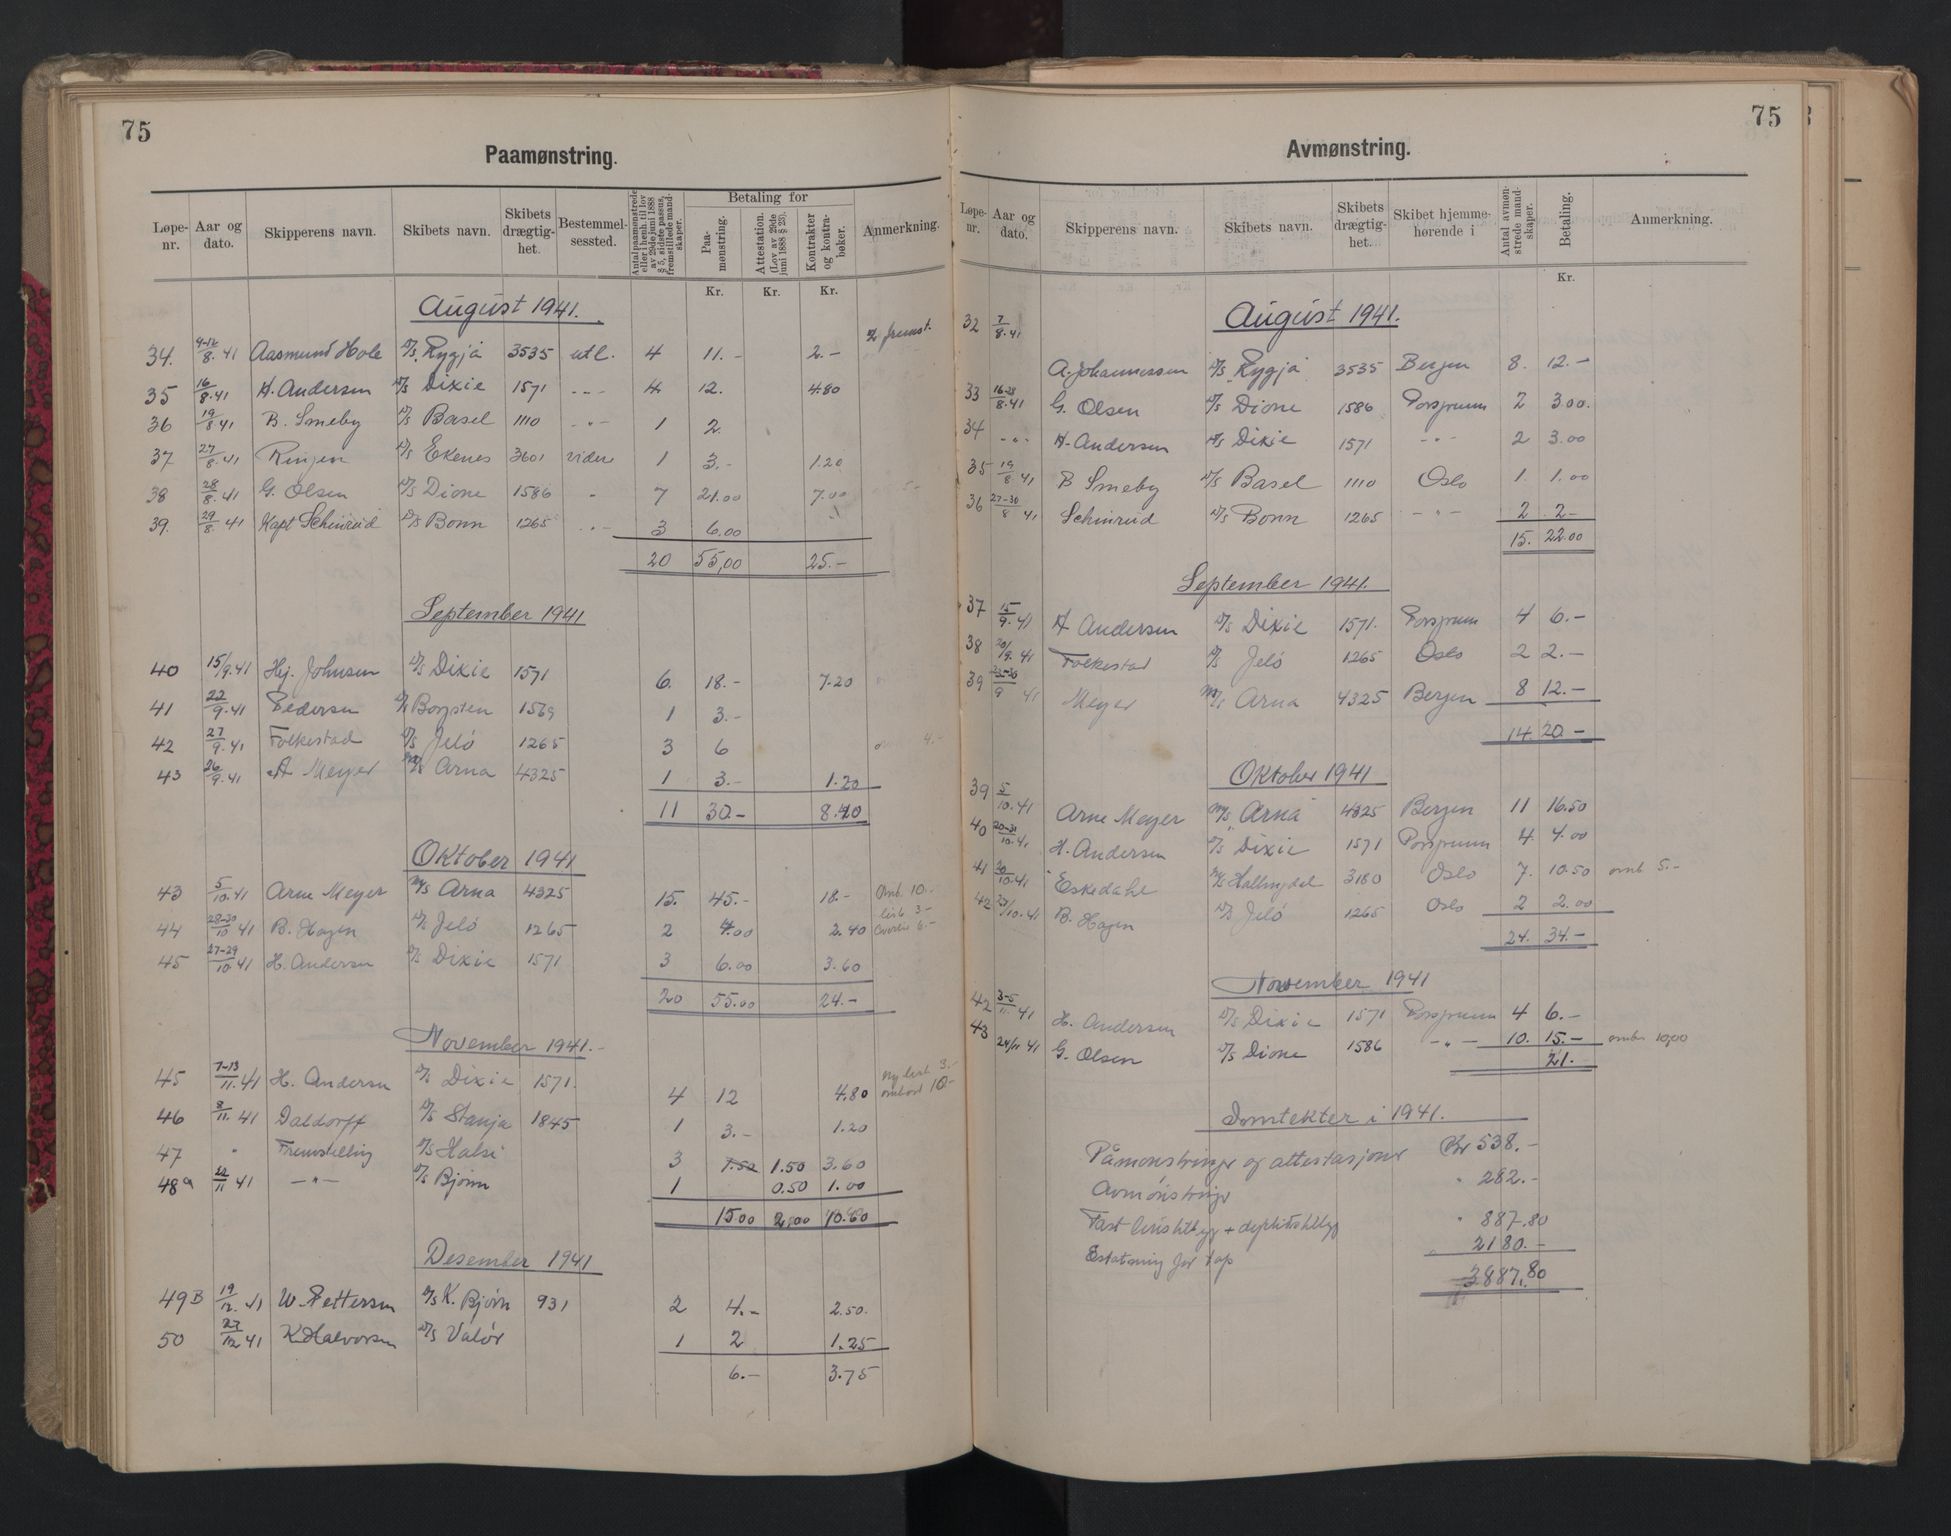 75
Paamønstring.
Løpe-nr. Aar og dato. Skipperens navn. Skibets navn. Skibets drægtig-het. Bestemmel-sessted. Antal paamønstrede eller i henh. til lov av 29de juni 1888 § 5, sidste passus, fremstillede mand-skaper. Betaling for Paa-mønstring. Attestation. (Lov av 29de juni 1888 § 23). Kontrakter og kontra-bøker. Anmerkning.
Kr. Kr. Kr.
August 1941.
34. 9-12/8.41 Aasmund Hole D/S. Rygja 3535 utl. 4 11.- 2.- fremst.
35 16/8.41 A. Andersen D/S Dixie 1571 -"- 4 12. 4.80
36 19/8 41 B. Smeby D/S Basel 1110 -"- 1 2.
37 27/8.41 Ringen D/S Ekenes 3601 videre 1 3.- 1.20
38 28/8.41 G. Olsen D/S Dione 1586 " 7 21.00 7.00 5-
39. 29/8.41 Kapt Schinrud D/S Bonn 1265 -"- 3 6.00
20 55,00 25.-
September 1941
40 15/9.41 Hej. Johnsen D/S Dixie 1571 6. 18.- 7.20
41 22/9.41 Pedersen D/S Borgsten 1569 1 3.-
42 27/9.41 Folkestad D/S Jelö 1265 3 6 4.-
43 26/9.41 A Meyer M/S Arna 4325 1 3.- 1.20
11 30.- 8.40
Oktober 1941
43 5/10.41 Arne Meyer M/S Arna 4325 15. 45.- 18.- Omb. 10.-
liste 3-
44 28-30/10 41 B. Hagen D/S Jelö 1265 2 4.00 2.40 Overtid 6.-
45 27-29/10.41 H. Andersen D/S Dixie 1571 3 6.00 3.60
20 55.00 24.-
November 1941.-
45 7-13/11.41 H. Andersen D/S Dixie 1571. 4 12 4.80 Ny liste 3.-
ombord 10-
46 8/11.41 Daldorff D/S Stanja 1845 1 3.- 1.20
47 " Fremstilling D/S Halse 3 7.50 1.50 3.60
48a 22/11 41 -"- D/S Bjørn 1 0.50 1.00
15.00 2,00 10.60
Desember 1941
49B 19/12.41 W. Pettersen D/S K. Bjørn 931 2 4.- 2.50.
50 27/12 41 K. Halvorsen D/S Valör 1 2 1.25
6.- 3.75
75
Avmønstring.
Løpe-nr. Aar og dato. Skipperens navn. Skibets navn. Skibets drægtig-het. Skibet hjemme-hørende i Antal avmøn-strede mand-skaper. Betaling. Anmerkning.
Kr.
August 1941.
32 7/8.41
A. Johannessen D/S Rygja 3535 Bergen 8. 12.-
33 16-28/8.41 G. Olsen D/S Dione 1586 Porsgrunn 2 3.00.
34 -"- A. Andersen D/S Dixie 1571 -"- 2 3.00
35 19/8 41 B Smeby D/S Basel 1110 Oslo 1. 1.00
36 27-30/8 41 Schinrud D/S Bonn 1265 -"- 2 2-
15. 22.00
September 1941.
37 15/9.41 A Andersen D/S Dixie 1571. Porsgrunn 4 6.-
38 20/9.41 Folkestad D/S Jelö 1265 Oslo 2 2.-
39 23-30/9 41 Meyer M/S Arna 4325 Bergen 8 12.-
14. 20.-
Oktober 1941
39 5/10.41 Arne Meyer M/S Arna 4325 Bergen 11 16.50
40 20-31/10.41 H. Andersen D/S Dixie 1571 Porsgrunn 4. 4.00
41 20/10.41 Eskedahl M/S Hallingdal 3180 Oslo 7. 10.50 omb 5.-
42 27/10.41 B. Hagen D/S Jelö 1265 Oslo 2 2.00
24. 34.-
November 1941
42 3-5/11.41 H. Andersen D/S Dixie 1571 Porsgrunn 4 6.-
43 24/11 41 G. Olsen D/S Dione 1586 -"- 10. 15.- ombr 10,00
21.-
Inntekter i 1941.
Påmønstringer og attestasjoner Kr 538.-
Avmønstringer " 282.-
Fast + " 887.80
Erstatning for tap " 2180.-
3887.80